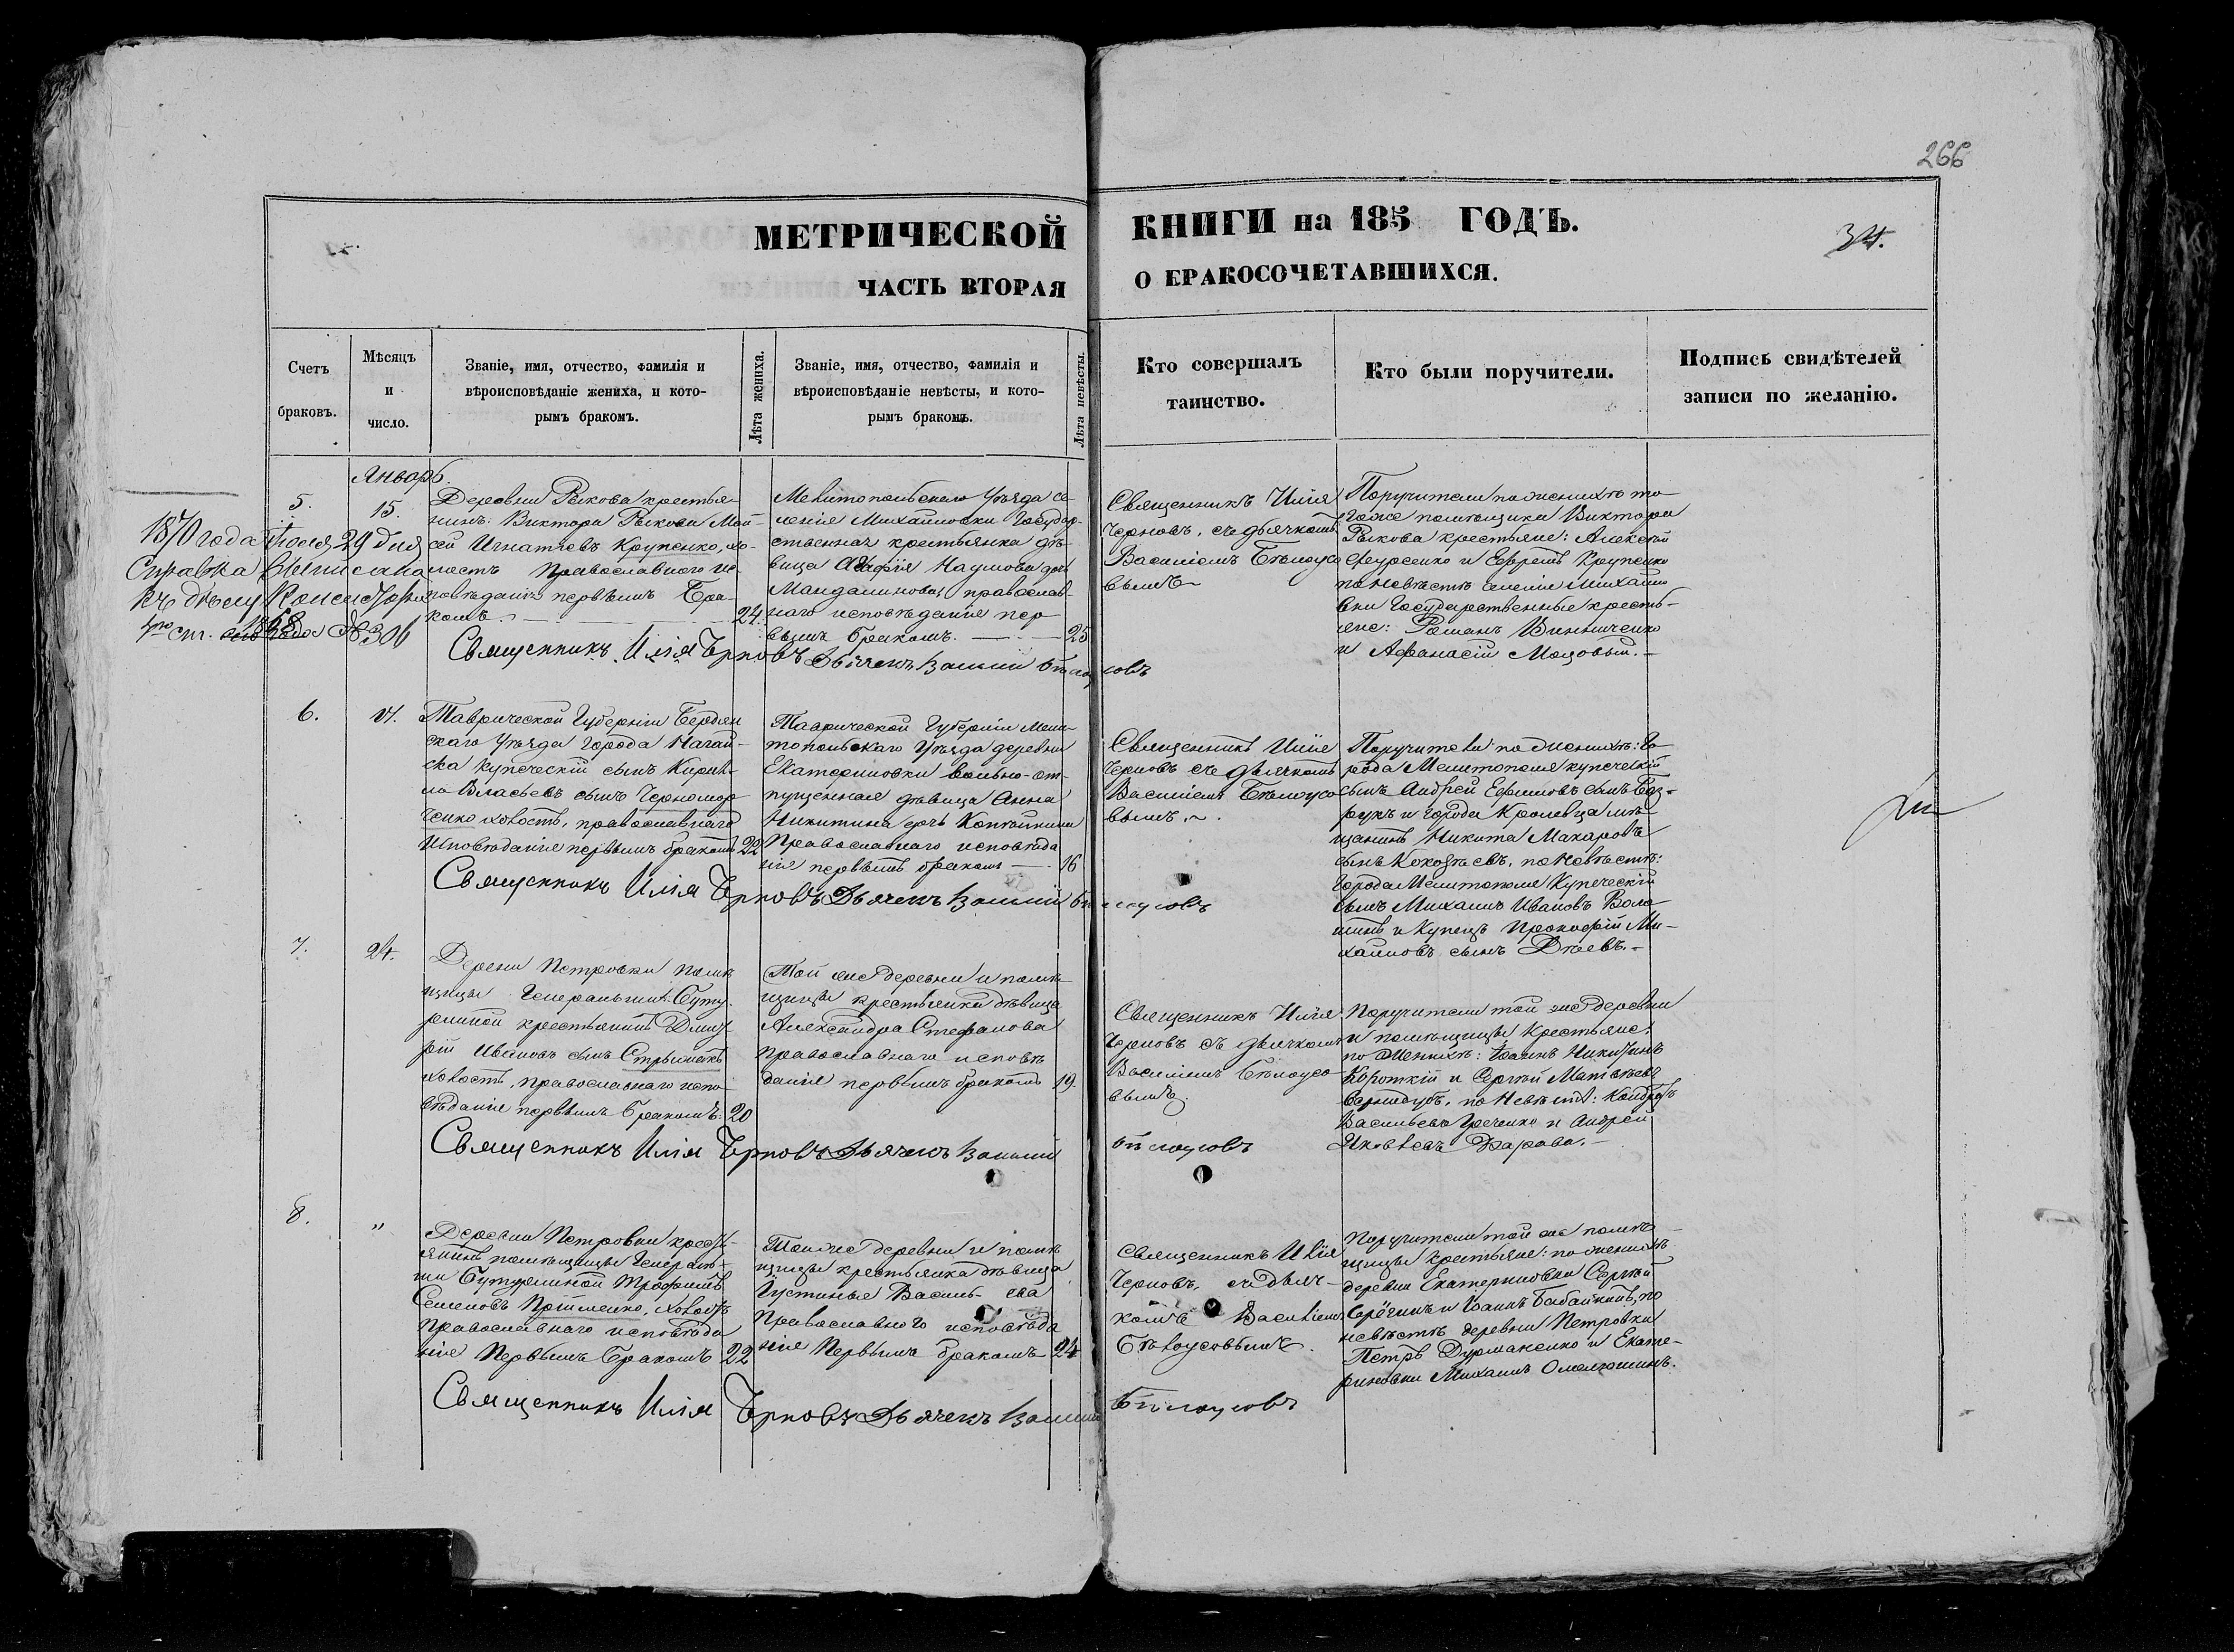 266
МЕТРИЧЕСКОЙ КНИГИ на 185 ГОДЪ.
34.
ЧАСТЬ ВТОРАЯ О БРАКОСОЧЕТАВШИХСЯ.
Счетъ
браковъ.
Мѣсяцъ
и
число.
Званіе, имя, отчество, фамилія и
вѣроисповѣданіе жениха, и кото-
рымъ бракомъ.
Лѣта жениха.
Званіе, имя, отчество, фамилія и
вѣроисповѣданіе невѣсты, и кото-
рымъ бракомъ.
Лѣта невѣсты.
Кто совершалъ
таинство.
Кто были поручители.
Подпись свидѣтелей
записи по желанію.
Январь.
5.
15.
1870 года Іюля 29 дня
Справка выписана
къ дѣлу
1868
№ 306
Деревни Рыкова крестья-
нинъ Виктора Рыкова Мой-
сей Игнатьевъ Крупенко, хо-
лостъ Православнаго ис-
повѣданія первымъ Бра-
комъ.
24.
Мелитопольскаго Уѣзда се-
ленія Михайловки Государ-
ственная крестьянка дѣ-
вица Агафія Наумова дочь
православ-
наго исповѣданія пер-
вымъ бракомъ.
25
Священникъ Илія
Черновъ, съ дьячкомъ
Василіемъ Бѣлоусо
вымъ
Поручители по женихѣ то
гоже помѣщика Виктора
Рыкова крестьяне: Алексѣй
и Ефремъ Крупенко
по невѣстѣ селенія Михайло
вки Государственные кресть-
яне: Романъ Винниченко
и Афанасій
Священникъ Илія Черновъ Дьячекъ Василій Бѣлоусовъ
6.
Таврической Губерніи Бердян
скаго Уѣзда города Нагай-
ска купеческій сынъ Кирил-
ло Власьевъ сынъ Черномор
ченко холостъ, православнаго
Исповѣданія первымъ бракомъ
22
Таврической Губерніи Мели-
топольскаго Уѣзда деревни
Екатериновки вольно-от-
пущенная дѣвица Анна
Никитина дочь
Православнаго исповѣда
нія первымъ бракомъ
16
Священникъ Илія
Черновъ съ дьячкомъ
Василіемъ Бѣлоусо
вымъ.
Поручители по женихѣ: Го-
рода Мелитополя купеческій
сынъ Андрей Ефимовъ сынъ
и города Кролевца мѣ-
щанинъ Никита Макаровъ
сынъ по невѣстѣ:
Города Мелитополя Купеческій
сынъ Михаилъ Ивановъ Воло-
шинъ и Купецъ Прокофій Ми-
хайловъ сынъ
Священникъ Илія Черновъ Дьячекъ Василій Бѣлоусовъ
7.
24.
Деревни Петровки помѣ
щицы Генеральши
крестьянинъ Дмит-
рій Ивановъ сынъ
холостъ, православнаго испо-
вѣданія первымъ бракомъ.
20
Той же деревни и помѣ-
щицы крестьянка дѣвица
Александра Стефанова
православнаго исповѣ
данія первымъ бракомъ
19.
Священникъ Илія
Черновъ съ дьячкомъ
Василіемъ Бѣлоусо-
вымъ.
Поручители той же деревни
и помѣщицы Крестьяне:
по женихѣ: Іоаннъ Никитинъ
Короткій и Сергѣй Матвѣевъ
по Невѣстѣ: Кондратъ
Васильевъ и Андрей
Яковлевъ
Священникъ Илія Черновъ Дьячекъ Василій Бѣлоусовъ
8.
"
Деревни Петровки крест-
янинъ помѣщицы Генераль-
ши Трофимъ
Семеновъ холостъ
Православнаго исповѣда
нія Первымъ Бракомъ
22
Той же деревни и помѣ
щицы крестьянка дѣвица
Іустинья Василь ева
Православнаго исповѣда
нія Первымъ бракомъ
24
Священникъ Илія
Черновъ, съ дьяч-
комъ Василіемъ
Бѣлоусовымъ.
Поручители той же помѣ-
щицы крестьяне: по женихѣ
деревни Екатериновки Сергѣй
и Іоаннъ Бабайкинъ, по
невѣстѣ деревни Петровки
Петръ Дурманенко и Екате-
риновки Михаилъ
Священникъ Илія Черновъ Дьячекъ Василій Бѣлоусовъ